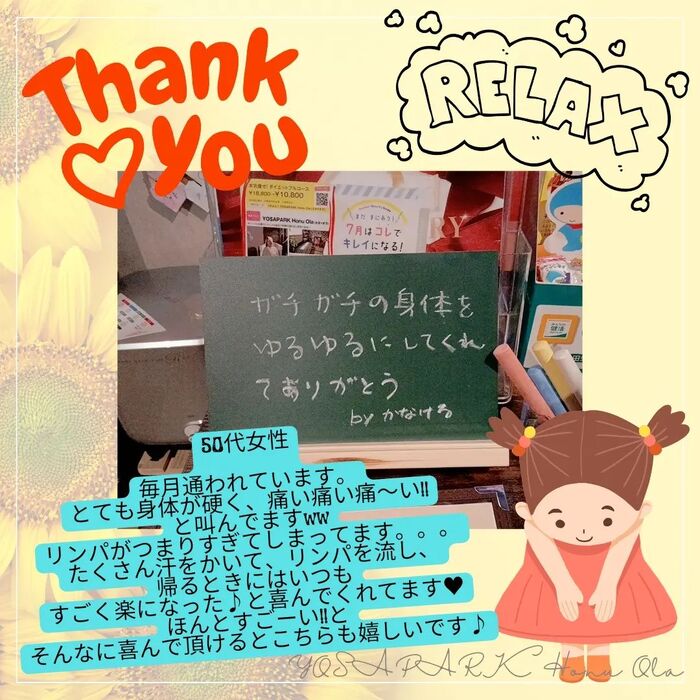 Thank
YOU
RELAX
¥18,800→¥10,800
YOSAPARK Honu Ola
まだ間に合う!
7月はコレで
キレイになる!
RY
ガチガチの身体を
ゆるゆるにしてくれ
てありがとう
by かなける
50代女性
毎月通われています。
とても身体が硬く、痛い痛い痛〜い!!
と叫んでますww
リンパがつまりすぎてしまってます。。。
たくさん汗をかいて、リンパを流し、
帰るときにはいつも
すごく楽になった♪と喜んでくれてます♥
ほんとすごーい!!と
そんなに喜んで頂けるとこちらも嬉しいです♪
YOSAPARK Honu Ola